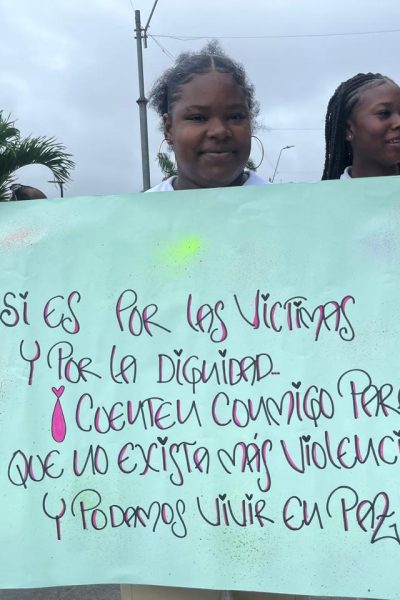 Si ES POR LAS VICTIMAS
Y POR LA DIGNIDAD...
¡ CUENTEN CONMIGO PARA
QUE NO EXISTA MÁS VIOLENCI
Y PODAMOS VIVIR EN PAZ